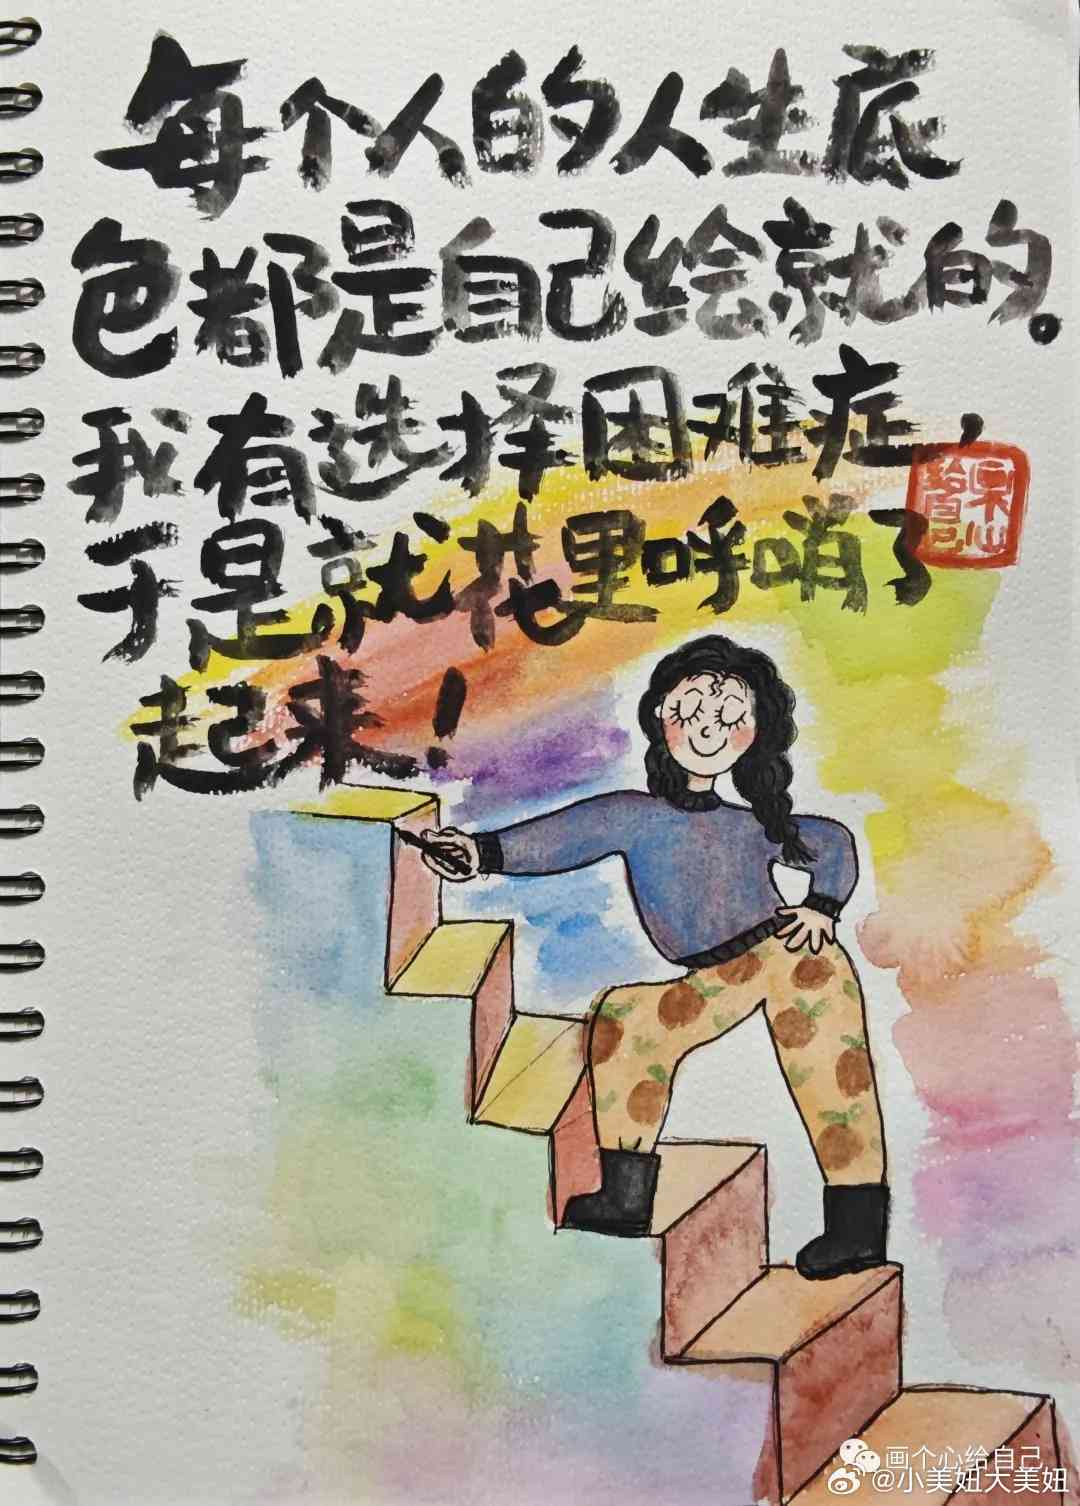 每个人的人生底
色都是自己绘就的。
我有选择困难症，
于是就花里呼哨了
起来！
画个心给自己
@小美妞大美妞